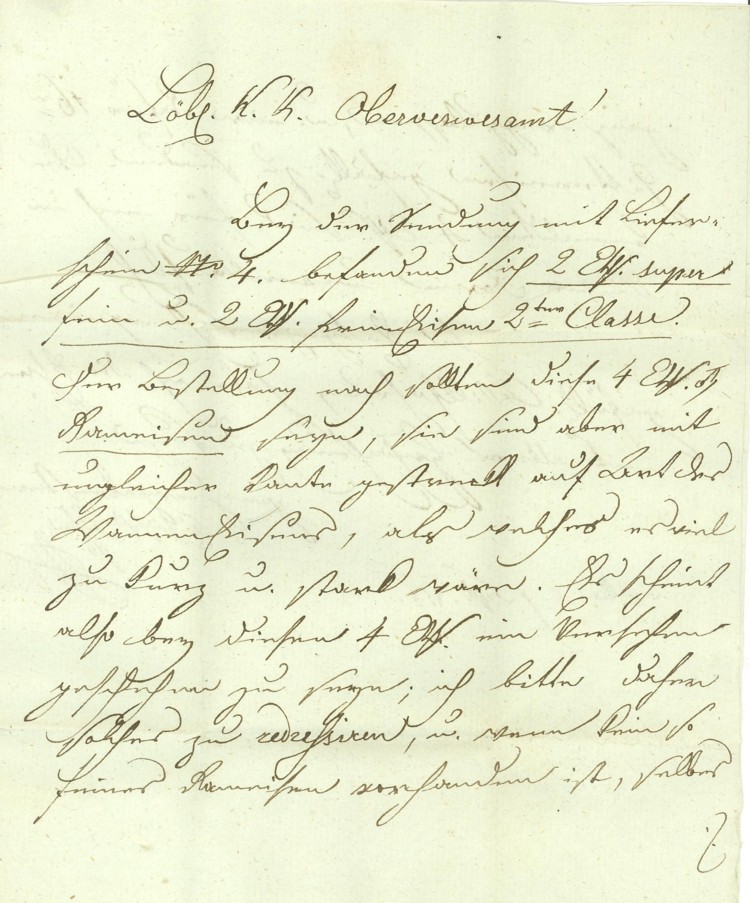 Löbl. K. K. Oberverwesamt!
Bey der Sendung mit Liefer-
schein No. 4. befanden sich 2 Ctr. super
fein u. 2 Ctr. fein Eisen 2ter Classe.
Der Bestellung nach sollten diese 4 Ctr.
Rameisen seyn, sie sind aber mit
ungleicher Kante gestreckt auf Art des
Wannen Eisens, als welches es viel
zu kurz u. stark wäre. Es scheint
also bey diesen 4 Ctr. ein Versehen
geschehen zu seyn; ich bitte daher
solches zu redressiren, u. wenn kein so
feines Rameisen vorhanden ist, selbes